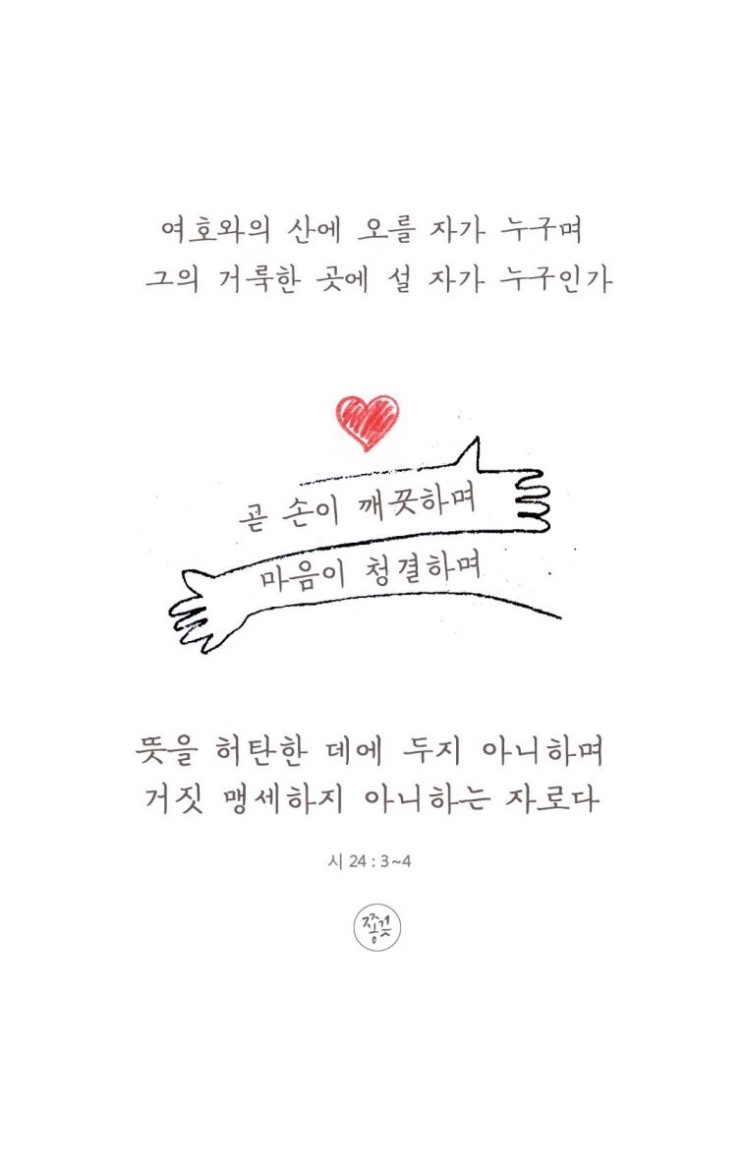 여호와의 산에 오를 자가 누구며
그의 거룩한 곳에 설 자가 누구인가
곧 손이 깨끗하며
마음이 청결하며
뜻을 허탄한 데에 두지 아니하며
거짓 맹세하지 아니하는 자로다
시 24 : 3~4